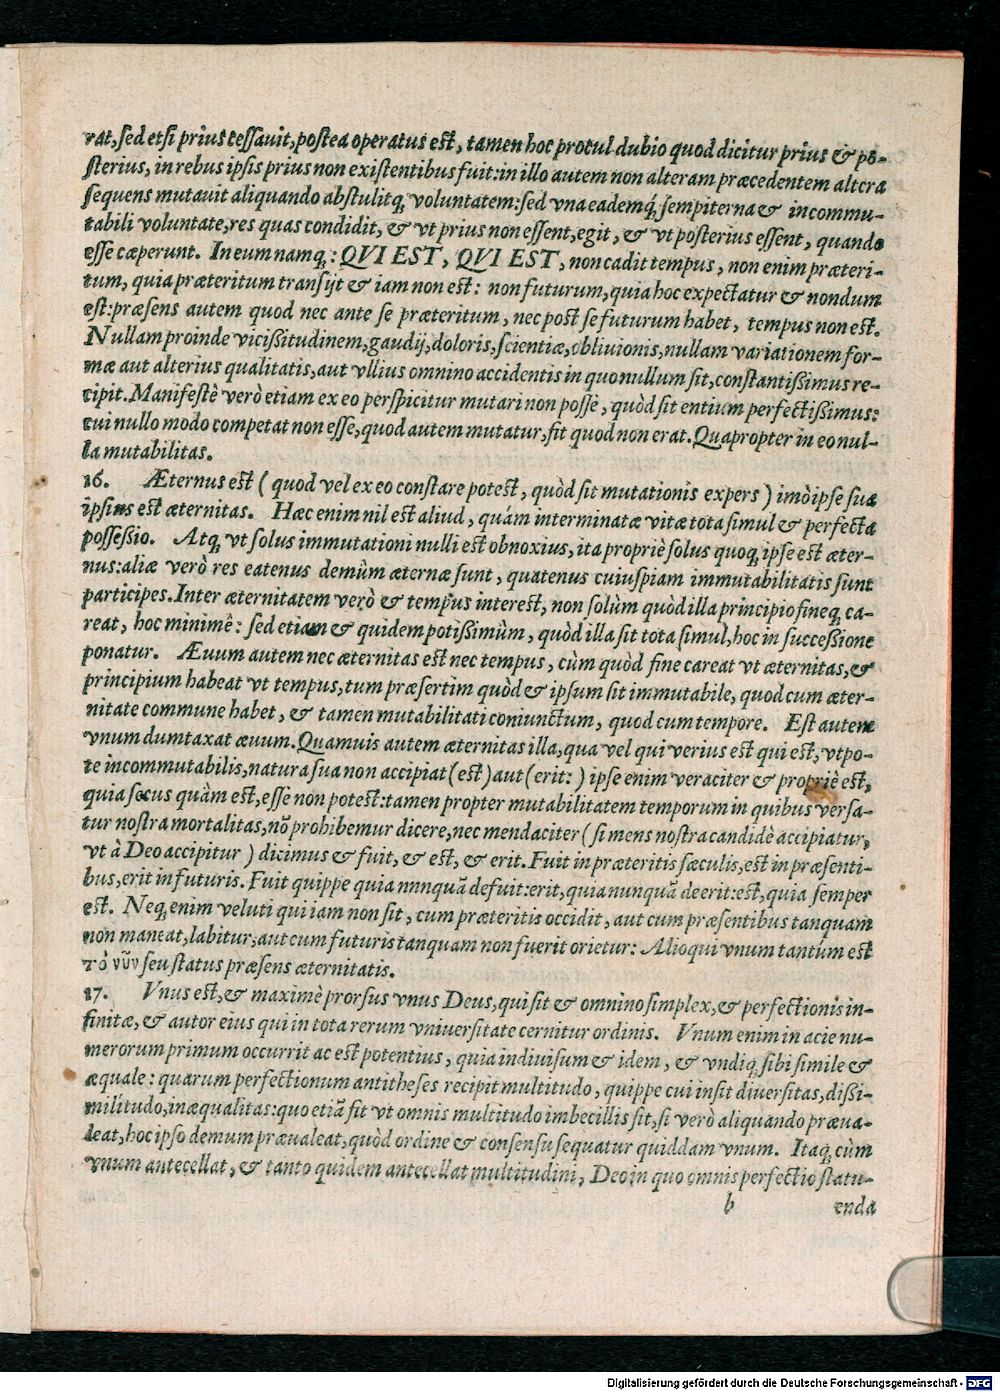 rat, ſed etſi prius ceſſauit, poſtea operatus eſt, tamen hoc procul dubio quod dicitur prius & po-
ſterius, in rebus ipſis prius non exiſtentibus fuit: in illo autem non alteram præcedentem altera
ſequens mutauit aliquando abſtulitq́; voluntatem: ſed vna eademq́; ſempiterna & incommu-
tabili voluntate, res quas condidit, & vt prius non eſſent, egit, & vt poſterius eſſent, quando
eſſe cæperunt. In eum namq;: QVI EST, QVI EST, non cadit tempus, non enim præteri-
tum, quia præteritum tranſijt & iam non eſt: non futurum, quia hoc expectatur & nondum
eſt: præſens autem quod nec ante ſe præteritum, nec poſt ſe futurum habet, tempus non eſt.
Nullam proinde viciſsitudinem, gaudij, doloris, ſcientiæ, obliuionis, nullam variationem for-
mæ aut alterius qualitatis, aut vllius omnino accidentis in quo nullum ſit, conſtantiſsimus re-
cipit. Manifeſtè verò etiam ex eo perſpicitur mutari non poſſe, quòd ſit entium perfectiſsimus:
cui nullo modo competat non eſſe, quod autem mutatur, fit quod non erat. Quapropter in eo nul-
la mutabilitas.
16. Æternus eſt ( quod vel ex eo conſtare poteſt, quòd ſit mutationis expers ) imò ipſe ſua
ipſius eſt æternitas. Hæc enim nil eſt aliud, quám interminatæ vitæ tota ſimul & perfecta
poſſeſsio. Atq; vt ſolus immutationi nulli eſt obnoxius, ita propriè ſolus quoq; ipſe eſt æter-
nus: aliæ verò res eatenus demùm æternæ ſunt, quatenus cuiuſpiam immutabilitatis ſunt
participes. Inter æternitatem verò & tempus intereſt, non ſolùm quòd illa principio fineq; ca-
reat, hoc minimê: ſed etiam & quidem potiſsimùm, quòd illa ſit tota ſimul, hoc in ſucceſsione
ponatur. Æuum autem nec æternitas eſt nec tempus, cùm quòd fine careat vt æternitas, &
principium habeat vt tempus, tum præſertim quòd & ipſum ſit immutabile, quod cum æter-
nitate commune habet, & tamen mutabilitati coniunctum, quod cum tempore. Eſt autem
vnum dumtaxat æuum. Quamuis autem æternitas illa, qua vel qui verius eſt qui eſt, vtpo-
te incommutabilis, natura ſua non accipiat (eſt) aut (erit: ) ipſe enim veraciter & propriè eſt,
quia ſecus quàm eſt, eſſe non poteſt: tamen propter mutabilitatem temporum in quibus verſa-
tur noſtra mortalitas, nõ prohibemur dicere, nec mendaciter ( ſi mens noſtra candidè accipiatur,
vt à Deo accipitur ) dicimus & fuit, & eſt, & erit. Fuit in præteritis ſæculis, eſt in præſenti-
bus, erit in futuris. Fuit quippe quia nnnquã defuit: erit, quia nunquã deerit: eſt, quia ſemper
eſt. Neq; enim veluti qui iam non ſit, cum præteritis occidit, aut cum præſentibus tanquam
non maneat, labitur, aut cum futuris tanquam non fuerit orietur: Alioqui vnum tantùm eſt
τὸ νῦν ſeu ſtatus præſens æternitatis.
17. Vnus eſt, & maximè prorſus vnus Deus, qui ſit & omnino ſimplex, & perfectionis in-
finitæ, & autor eius qui in tota rerum vniuerſitate cernitur ordinis. Vnum enim in acie nu-
merorum primum occurrit ac eſt potentius, quia indiuiſum & idem, & vndiq; ſibi ſimile &
æquale: quarum perfectionum antitheſes recipit multitudo, quippe cui inſit diuerſitas, diſsi-
militudo, inæqualitas: quo etiã fit vt omnis multitudo imbecillis ſit, ſi verò aliquando præua-
leat, hoc ipſo demum præualeat, quòd ordine & conſenſu ſequatur quiddam vnum. Itaq; cùm
vnum antecellat, & tanto quidem antecellat multitudini, Deo in quo omnis perfectio ſtatu-
b enda
Digitalisierung gefördert durch die Deutsche Forschungsgemeinschaft - DFG